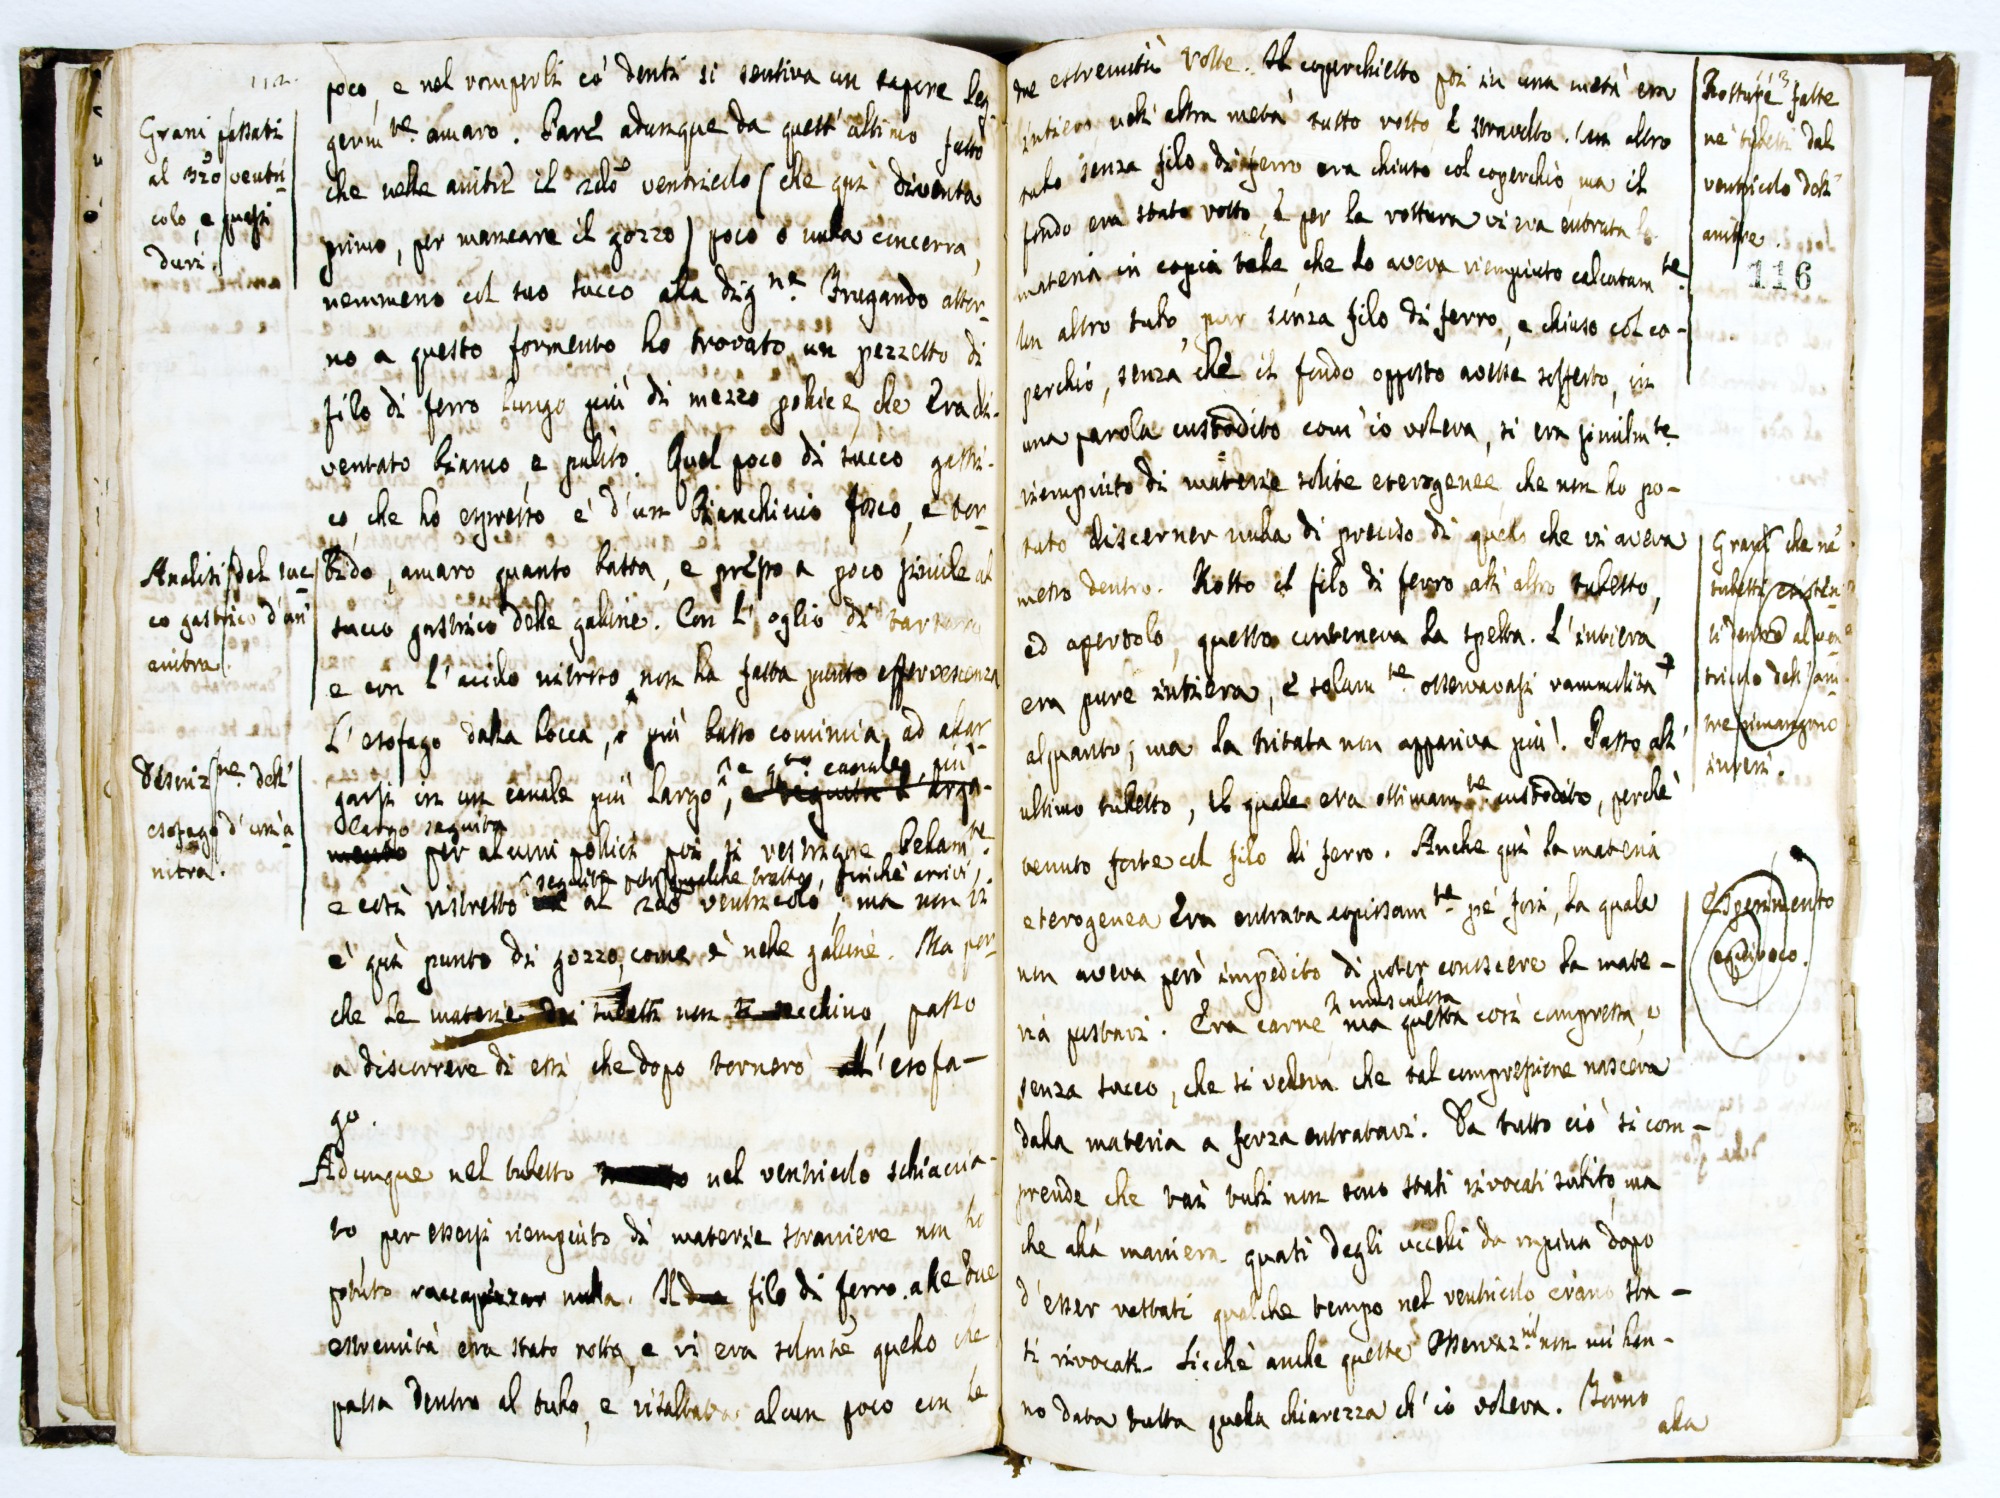 112.
Grani passati
al 2do ventri
colo, e quasi
duri.
poco, e nel romperli co' denti si sentiva un sapore leg
germte amaro. Pare adunque da quest'ultimo fatto
che nelle anitre il 2do ventricolo (che quì diventa
primo, per mancare il gozzo) poco o nulla concorra,
nemmeno col suo succo alla digne. Frugando attor-
no a questo formento ho trovato un pezzetto di
filo di ferro lungo più di mezzo pollice, che era di-
ventato bianco, e pulito. Quel poco di succo gastri-
co, che ho espresso è d'un bianchiccio fosco, e tor-
Analisi del suc
co gastrico d'un'
anitra.
bido, amaro quanto basta, e presso a poco simile al
succo gastrico delle galline. Con l'oglio di tartaro
e con l'acido nitroso non ha fatta punto effervescenza
Descrizne dell'
esofago d'un'a
nitra.
L'esofago dalla bocca, o più basso comincia ad allar-
garsi in un canale più largo, e qto canale più
e seguita a larga-
largo seguita
mento per alcuni pollici poi si restrigne bellamte
seguita per qualche tratto, finchè arrivi,
e così ristretto al 2do ventricolo, ma non vi
è quì punto di gozzo, come è nelle galline. Ma per-
che le materie dei tubetti non si secchino, passo
a discorrere di essi che dopo tornerò all'esofa-
go.
Adunque nel tubetto nel ventricolo schiaccia-
to, per essersi riempiuto di materie straniere non ho
potuto raccapezzar nulla. Il filo di ferro alle due
estremità era stato rotto, e vi era solmte quello che
passa dentro al tubo, e risaltava alcun poco con le
due estremità rotte. Il coperchietto poi in una metà era
intiero nell'altra metà tutto rotto e stravolto. Un altro
tubo senza filo di ferro era chiuso col coperchio, ma il
fondo era stato rotto, e per la rottura vi era entrata la
materia in copia tale, che lo aveva riempiuto calcatamte
Rotture fatte
ne' tubetti dal
ventricolo dell'
anitre.
116
Un altro tubo, pur senza filo di ferro, e chiuso col co-
perchio, senza che il fondo opposto avesse sofferto, in
una parola custodito com'io voleva, si era similmte
riempiuto di materie solite eterogenee che non ho po-
tuto discerner nulla di preciso di quello che vi aveva
messo dentro. Rotto il filo di ferro all'altro tubetto,
ed apertolo, questo conteneva la spelta. L'intiera
era pure intiera, e solamte osservavasi rammollita
alquanto; ma la tritata non appariva più. Passo all'
Grani che ne'
tubetti esisten
ti dentro al ven
tricolo dell'ani
tre rimangono
interi.
ultimo tubetto, il quale era ottimamte custodito, perchè
tenuto forte col filo di ferro. Anche quì la materia
eterogenea era entrata copiosamte pe' fori, la quale
non aveva però impedito di poter conoscere la mate-
Esperimento
equivoco.
muscolosa
ria postavi. Era carne, ma questa così compressa, e
senza succo, che si vedeva che tal compressione nasceva
dalla materia a forza entratavi. Da tutto ciò si com-
prende che varj tubi non sono stati rivocati subito, ma
che alla maniera quasi degli uccelli da rapina dopo
d'esser restati qualche tempo nel ventricolo erano sta-
ti rivocati. Sicchè anche queste osservazni non mi han-
no data tutta quella chiarezza ch'io voleva. Torno
alla